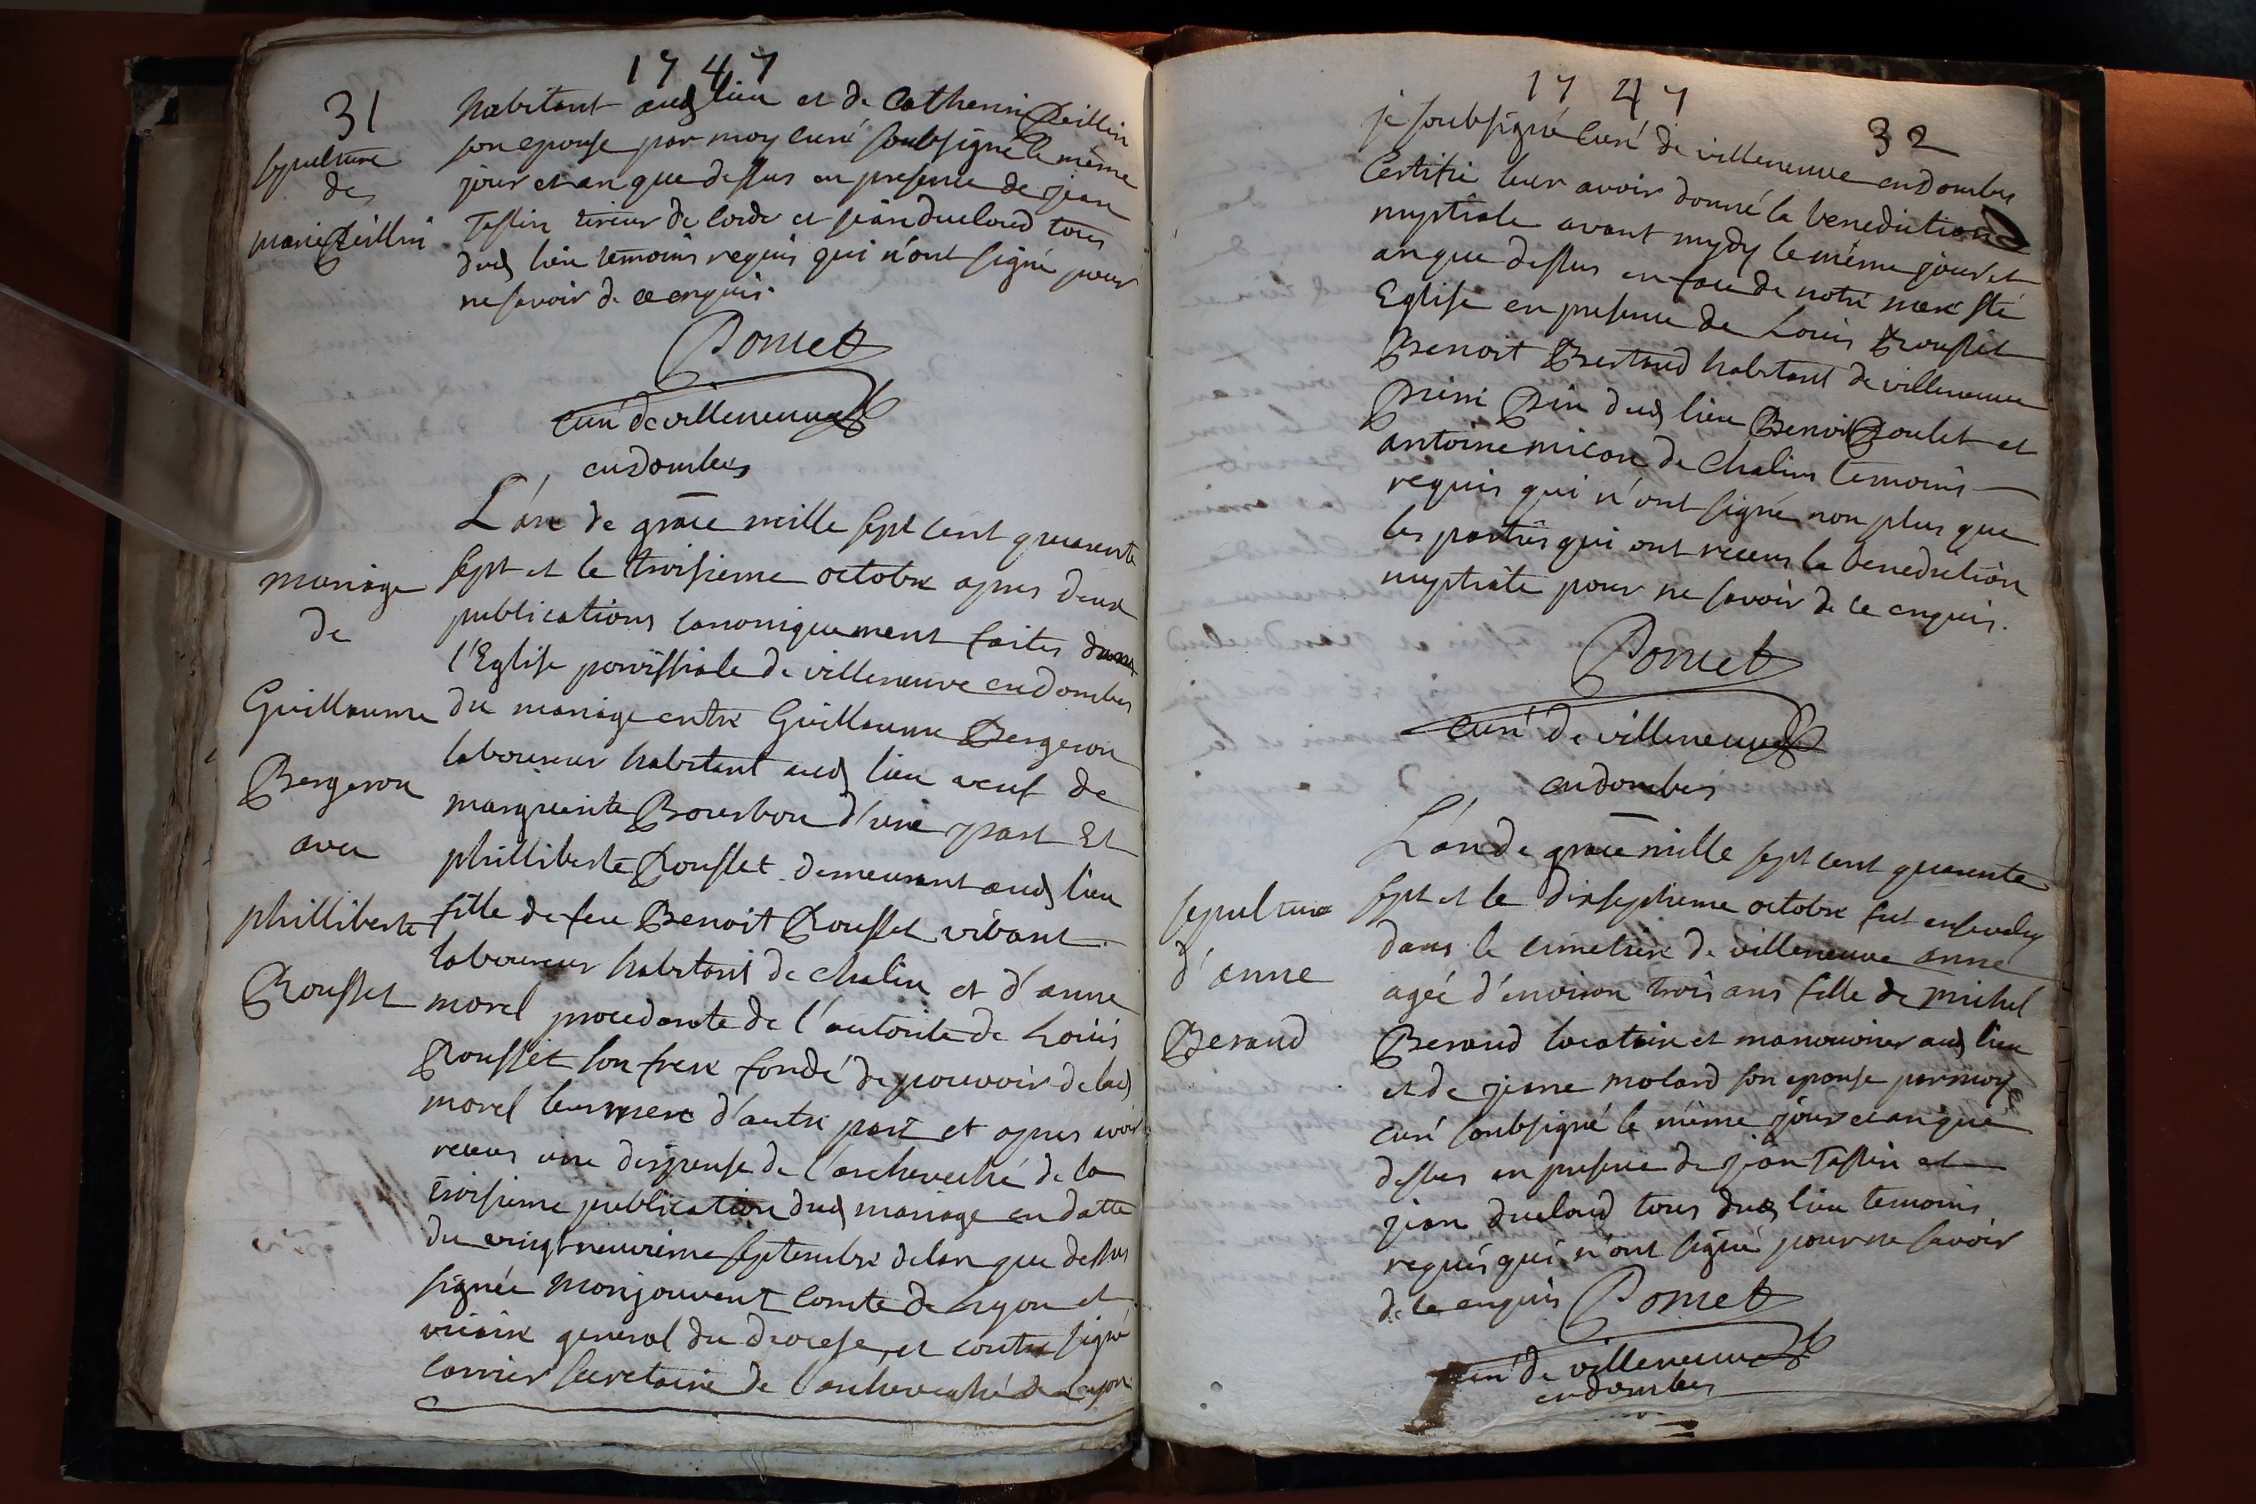 1747
31
sepulture
de
marie Peillin
habitant aud lieu et de Catherin Peillin
son epouse par moy curé soubsigné le même
jour et an que dessus en presence de jean
Tassin tireur de corde et jean ducloud tous
dud lieu temoins requis qui n'ont signé pour
ne savoir de ce enquis.
Pomet
curé de villeneuve
en dombes
mariage
de
Guillaume
Bergeron
avec
philliberte
Rousset
L'an de grace mille sept cent quarente
sept et le troisieme octobre apres deux
publications canoniquement faites dans
l'Eglise parroissiale de villeneuve en dombes
du mariage entre Guillaume Bergeron
laboureur habitant aud lieu veuf de
marguerite Bourbon d'une part Et
phillibeste Rousset demeurant aud lieu
fille de feu Benoit Rousset vivant
laboureur habitant de chalin et d'anne
morel procedante de l'autorité de Louis
Rousset son frere fondé de pouvoir de lad
morel leur mere d'autre part et apres avoir
receus une dispense de l'archeveché de la
troisieme publication dud mariage en datte
du vingt neuvieme septembre de lan que dessus
signée Monjouvent Comte de Lyon et
vicaire general du diocese, et contre signé
Carrier secretaire de l'archeveché de Lyon
1747
32
je soubsigné curé de villeneuve en dombes
Certifie leur avoir donné la benediction
nuptiale avant mydy le même jour et
an que dessus en face de notre mere Ste
Eglise en presence de Louis Rousset
Benoit Bertaud habitant de villeneuve
Pierre Pin dud lieu Benoit Roulet et
antoine micon de Chalins temoins
requis qui n'ont signé non plus que
les parties qui ont receus la benediction
nuptiale pour ne savoir de ce enquis.
Pomet
curé de villeneuve
en dombes
sepulture
d'anne
Beraud
L'an de grace mille sept cent quarente
sept et le dixseptieme octobre fut ensevely
dans le cimetiere de villeneuve anne
agée d'environ trois ans fille de michel
Beraud locatair et manouvrier aud lieu
et de jeanne molard son epouse par moy
curé soubsigné le même jour et an que
dessus en presence de jean Tassin et
jean ducloud tous dud lieu temoins
requis qui n'ont signé pour ne savoir
de ce enquis Pomet
curé de villeneuve
en dombes